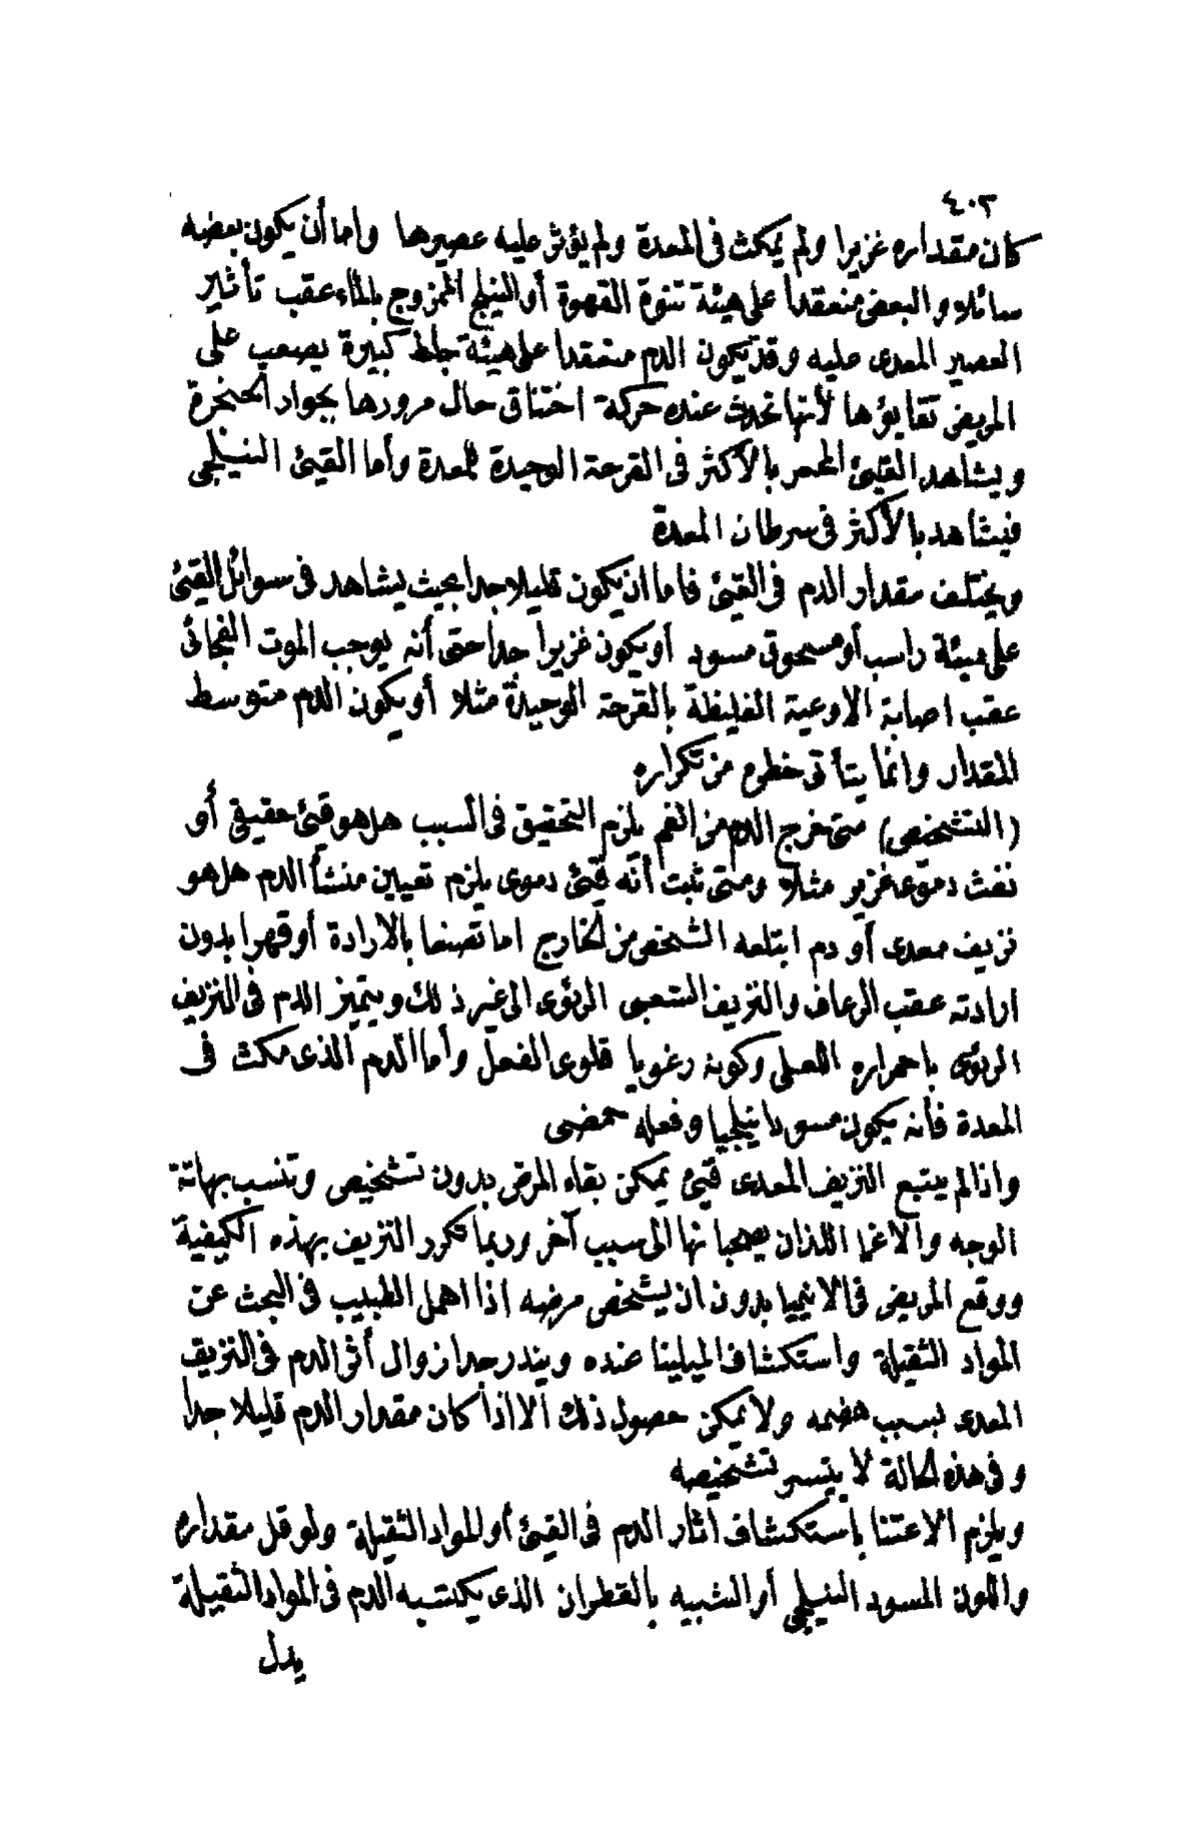 ٤٠٢
كان مقداره غزيرا ولم يمكث فى المعدة ولم يؤثر عليه عصيرها واما أن يكون بعضه
سائلا والبعض منعقدا على هيئة تنوة القهوة أو النيلج الممزوج بالماء عقب تأثير
العصير المعدى عليه وقد يكون الدم منعقدا على هيئة جلط كبيرة يصعب على
المريض تقايؤها لأنها تحدث عنده حركة اختناق حال مرورها بجوار الحنجرة
ويشاهد القيئ المحمر بالأكثر فى القرحة الوحيدة للمعدة وأما القيئ النيلجى
فيشاهد بالأكثر فى سرطان المعدة
ويختلف مقدار الدم فى القيئ فاما ان يكون قليلا جدا بحيث يشاهد فى سوائل القيئ
على هيئة راسب أو مسحوق مسود أو يكون غزيرا جدا حتى أنه يوجب الموت الفجائى
عقب اصابة الاوعية الغليظة بالقرحة الوحيدة مثلا أو يكون الدم متوسط
المقدار وانما يتأتى خطره من تكراره
(التشخيص) متى خرج الدم من الفم يلزم التحقيق فى السبب هل هو قيئ حقيقى أو
نفث دموى غزير مثلا ومتى ثبت أنه قيئ دموى يلزم تعيين منشأ الدم هل هو
نزيف معدى أو دم ابتلعه الشخص من الخارج اما تصنعا بالارادة أو قهرا بدون
ارادته عقب الرعاف والنزيف الشعبى الرئوى الى غير ذلك ويتميز الدم فى النزيف
الرئوى باحمراره اللعلى وكونه رغويا قلوى الفعل وأما الدم الذى مكث فى
المعدة فأنه يكون مسودا نيلجيا وفعله حمضى
واذا لم يتبع النزيف المعدى قيئ يمكن بقاء المرض بدون تشخيص وتنسب بهاتة
الوجه والاغما اللذان يصحبانها الى سبب آخر وربما تكرر النزيف بهذه الكيفية
ووقع المريض فى الانيميا بدون ان يشخص مرضه اذا اهمل الطبيب فى البحث عن
المواد الثقيلة واستكشاف الميلينا عنده ويندر جدا زوال أثر الدم فى النزيف
المعدى بسبب هضمه ولا يمكن حصول ذلك الا اذا كان مقدار الدم قليلا جدا
وفى هذه الحالة لا يتسر تشخيصه
ويلزم الاعتنا باستكشاف آثار الدم فى القيئ أو للمواد الثقيلة ولو قل مقداره
واللون المسود النيلجى أو الشبيه بالقطران الذى يكتسبه الدم فى المواد الثقيلة
يدل